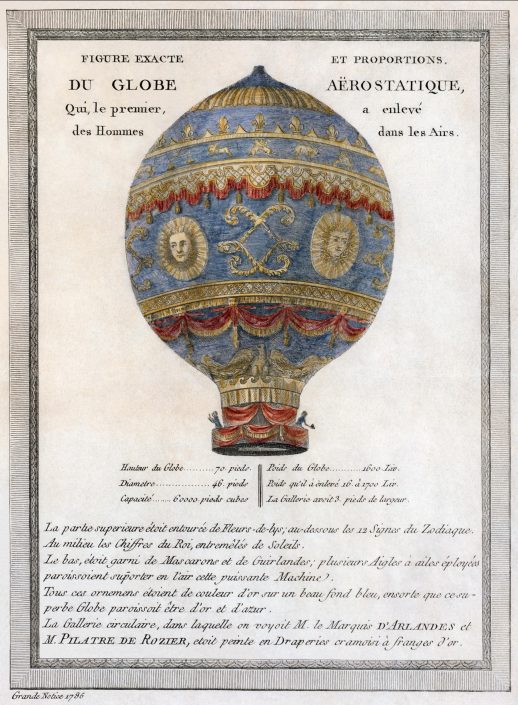 FIGURE EXACTE ET PROPORTIONS,
DU GLOBE AËROSTATIQUE,
Qui, le premier, a enlevé
des Hommes dans les Airs.
Hauteur du Globe..........70 pieds.
Diametre..................46 pieds.
Capacité.......60000 pieds cubes
Poids du Globe..........1600 Liv.
Poids qu'il à enlevé 16 à 1700 Liv.
La Gallerie avoit 3 pieds de largeur.
La partie superieure étoit entourée de Fleurs-de-lys; au-dessous les 12 Signes du Zodiaque.
Au milieu les Chiffres du Roi, entremêlés de Soleils.
Le bas, étoit garni de Mascarons et de Guirlandes; plusieurs Aigles à aîles éployées
paroissoient suporter en l'air cette puissante Machine).
Tous ces ornemens étoient de couleur d'or sur un beau fond bleu, ensorte que ce su-
perbe Globe paroissoit être d'or et d'azur.
La Gallerie circulaire, dans laquelle on voyoit M. le Marquis D'ARLANDES et
M. PILATRE DE ROZIER, etoit peinte en Draperies cramoisi à franges d'or.
Grande Notice 1786